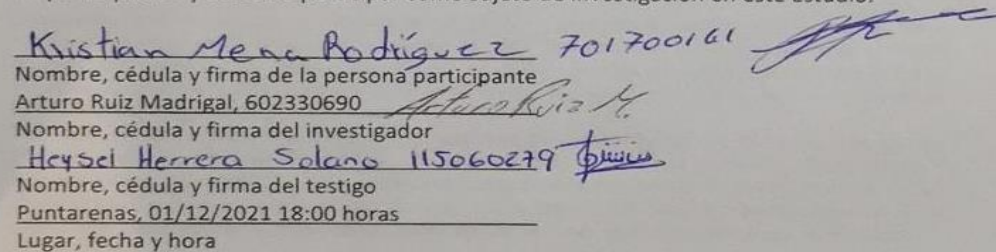 como sujeto de investigación en este estudio.
Kristian Mena Rodríguez 701700161
Nombre, cédula y firma de la persona participante
Arturo Ruiz Madrigal, 602330690 Arturo Ruiz M.
Nombre, cédula y firma del investigador
Heysel Herrera Solano 115060279
Nombre, cédula y firma del testigo
Puntarenas, 01/12/2021 18:00 horas
Lugar, fecha y hora